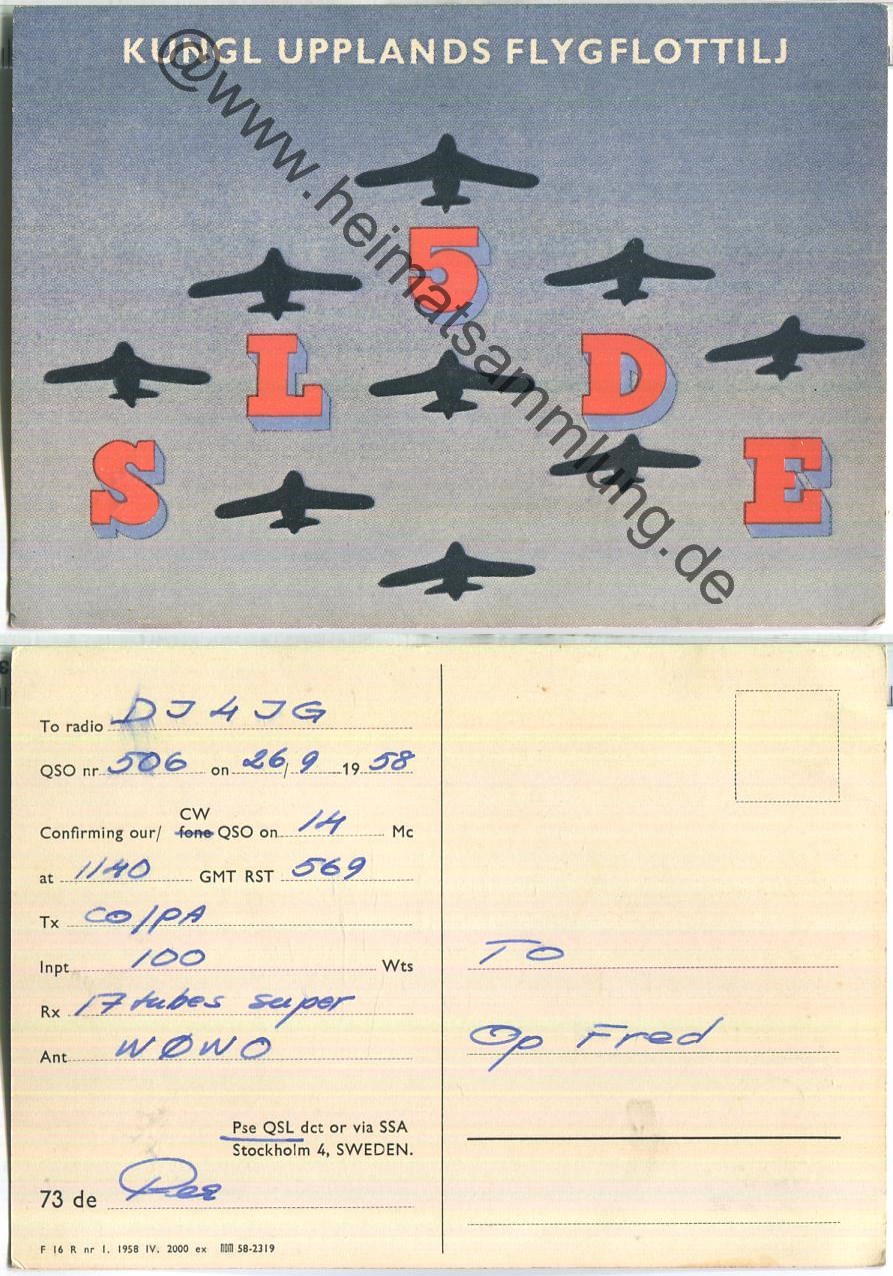 KUNGL UPPLANDS FLYGFLOTTILJ
@www.heimatsammlung.de
5
L D
S E
To radio DJ4JG
QSO nr 506 on 26/9 1958
CW
Confirming our/ fone QSO on 14 Mc
at 1140 GMT RST 569
Tx CO/PA
Inpt 100 Wts
Rx 17 tubes super
Ant WØWO
Pse QSL dct or via SSA
Stockholm 4, SWEDEN.
73 de
F 16 R nr 1. 1958 IV. 2000 ex 58-2319
TO
Op Fred